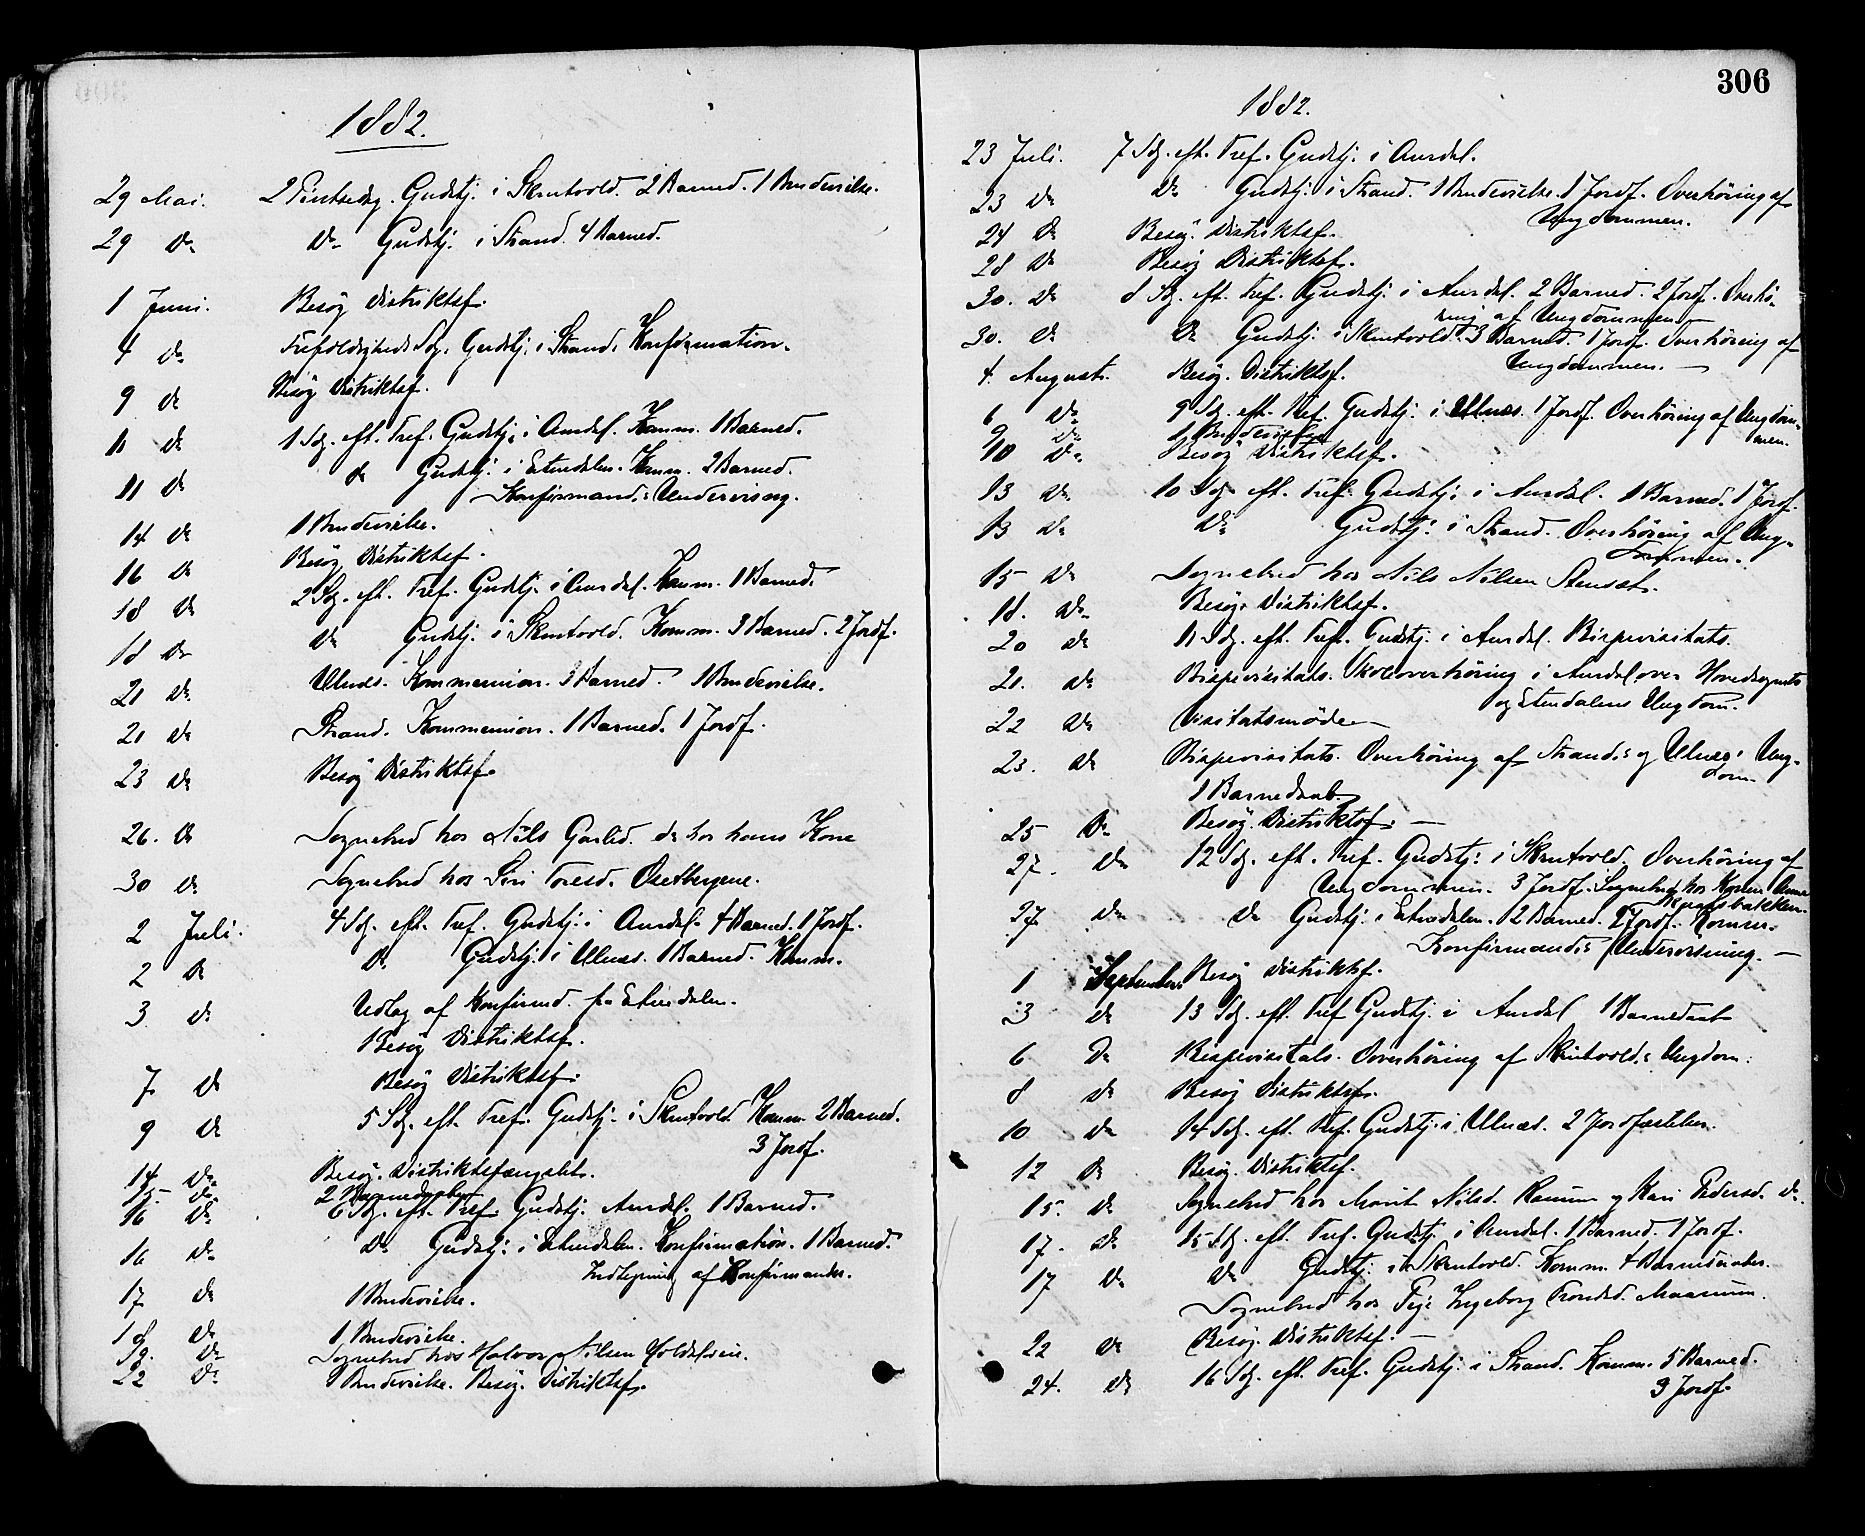 1882.
29 Mai. 2 Pintsedg. Gudstj. i Skrutvold. 2 Barned. 1 Brudevielse.
29 Do Do Gudstj. i Strand. 4 Barned.
1 Juni. Besøg Distriktsf.
4 Do Trefoldigheds Sdg. Gudstj. i Strand. Konfirmation.
9 Do Besøg Distriktsf.
11 Do 1 Sdg. eft. Tref. Gudstj. i Aurdal. Komm. 1 Barned.
11 Do do Gudstj. i Etnedalen. Komm. 2 Barned.
Konfirmand: Undervisng.
14 Do 1 Brudevielse.
16 Do Besøg Distriktsf.
18 Do 2 Sdg. eft. Tref. Gudstj. i Aurdal. Komm. 1 Barned.
18 Do Do Gudstj. i Skrutvold. Komm. 3 Barned. 2 Jordf.
21 Do Ulnes. Kommunion. 3 Barned. 1 Brudevielse.
21 Do Strand. Kommunion. 1 Barned. 1 Jordf.
23 Do Besøg Distriktsf.
26. Do Sognebud hos Nils Garlid. do hos hans Kone
30 Do Sognebud hos Siri Toresd.
2 Juli. 4 Sdg. eft. Tref. Gudstj. i Aurdal. 4 Barned. 1 Jordf.
2 Do Do Gudstj. i Ulnes. 1 Barned. Komm.
3 Do Udtog af Konfirmd. fra Etnedalen.
Besøg Distriktsf.
7 Do Besøg Distriktsf.
9 Do 5 Sdg. eft. Tref. Gudstj. i Skrutvold. Komm. 2 Barned.
3 Jordf.
14 Do Besøg. Distriktsfængslet.
15 Do 2 Barnedaaber
16 Do 6 Sdg. eft. Tref. Gudstj. Aurdal. 1 Barned.
16 Do Do Gudstj. i Etnedalen. Konfirmation. 1 Barned.
Indtegning af Konfirmander.
17 Do 1 Brudevielse.
18 Do 1 Brudevielse.
19. Do Sognebud hos Halvor Nilsen
22 Do 1 Brudevielse. Besøg. Distriktsf.
306
1882.
23 Juli. 7 Sdg. eft. Tref. Gudstj. i Aurdal.
23 Do Do Gudstj. i Strand. 1 Brudevielse. 1 Jordf. Overhøring af
Ungdommen.
24 Do Besøg. Distriktsf.
28 Do Besøg Distriktsf.
30. Do 8 Sdg. eft. Tref. Gudstj. i Aurdal. 2 Barned. 2 Jordf. Overhø-
ring af Ungdommen.
30. Do Do Gudstj. i Skrutvold. 3 Barned. 1 Jordf. Overhøring af
Ungdommen.
4. August. Besøg. Distriktsf.
6 Do 9 Sdg. eft. Tref. Gudstj. i Ulnes. 1 Jordf. Overhøring af Ungdom-
men.
9 Do 1 Brudevielse
10 Do Besøg Distriktsf.
13 Do 10 Sdg. eft. Tref. Gudstj. i Aurdal. 1 Barned. 1 Jordf.
13 Do Do Gudstj. i Strand. Overhøring af Ung-
dommen.
15 Do Sognebud hos Nils Nilsen Stensæt.
18. Do Besøg. Distriktsf.
20 Do 11 Sdg. eft. Tref. Gudstj. i Aurdal. Bispevisitats.
21. Do Bispevisitats. Skoleoverhøring i Aurdal over Hovedsognets
og Etnedalens Ungdom.
22 Do Visitatsmøde
23. Do Bispevisitats. Overhøring af Strands og Ulnes' Ung-
dom.
1 Barnedaab.
25 Do Besøg. Distriktsf.
27. Do 12 Sdg. eft. Tref. Gudstj. i Skrutvold. Overhøring af
Ungdommen. 3 Jordf. Sognebud hos Konen Anne
27 Do Do Gudstj. i Etnedalen. 2 Barned. 2 Jordf. Komm.
Konfirmands Undervisning.
1 September Besøg Distriktsf.
3 Do 13 Sdg. eft. Tref Gudstj. i Aurdal 1 Barnedaab
6 Do Bispevisitats. Overhøring af Skrutvolds Ungdom.
8 Do Besøg Distriktsf.
10 Do 14 Sdg. eft. Tref. Gudstj. i Ulnes. 2 Jordfæstelser.
12 Do Besøg. Distriktsf.
15. Do Sognebud hos Marit Nilsd. og Kari Pedersd. do.
17. Do 15 Sdg. eft. Tref. Gudstj. i Aurdal. 1 Barned. 1 Jordf.
17 Do Do Gudstj. i Skrutvold. Komm. 4 Barnedaaber.
Sognebud hos Pige Ingeborg Trondsd.
22 Do Besøg. Distriktsf.
24. Do 16 Sdg. eft. Tref. Gudstj. i Strand. Komm. 5 Barned.
3 Jordf.